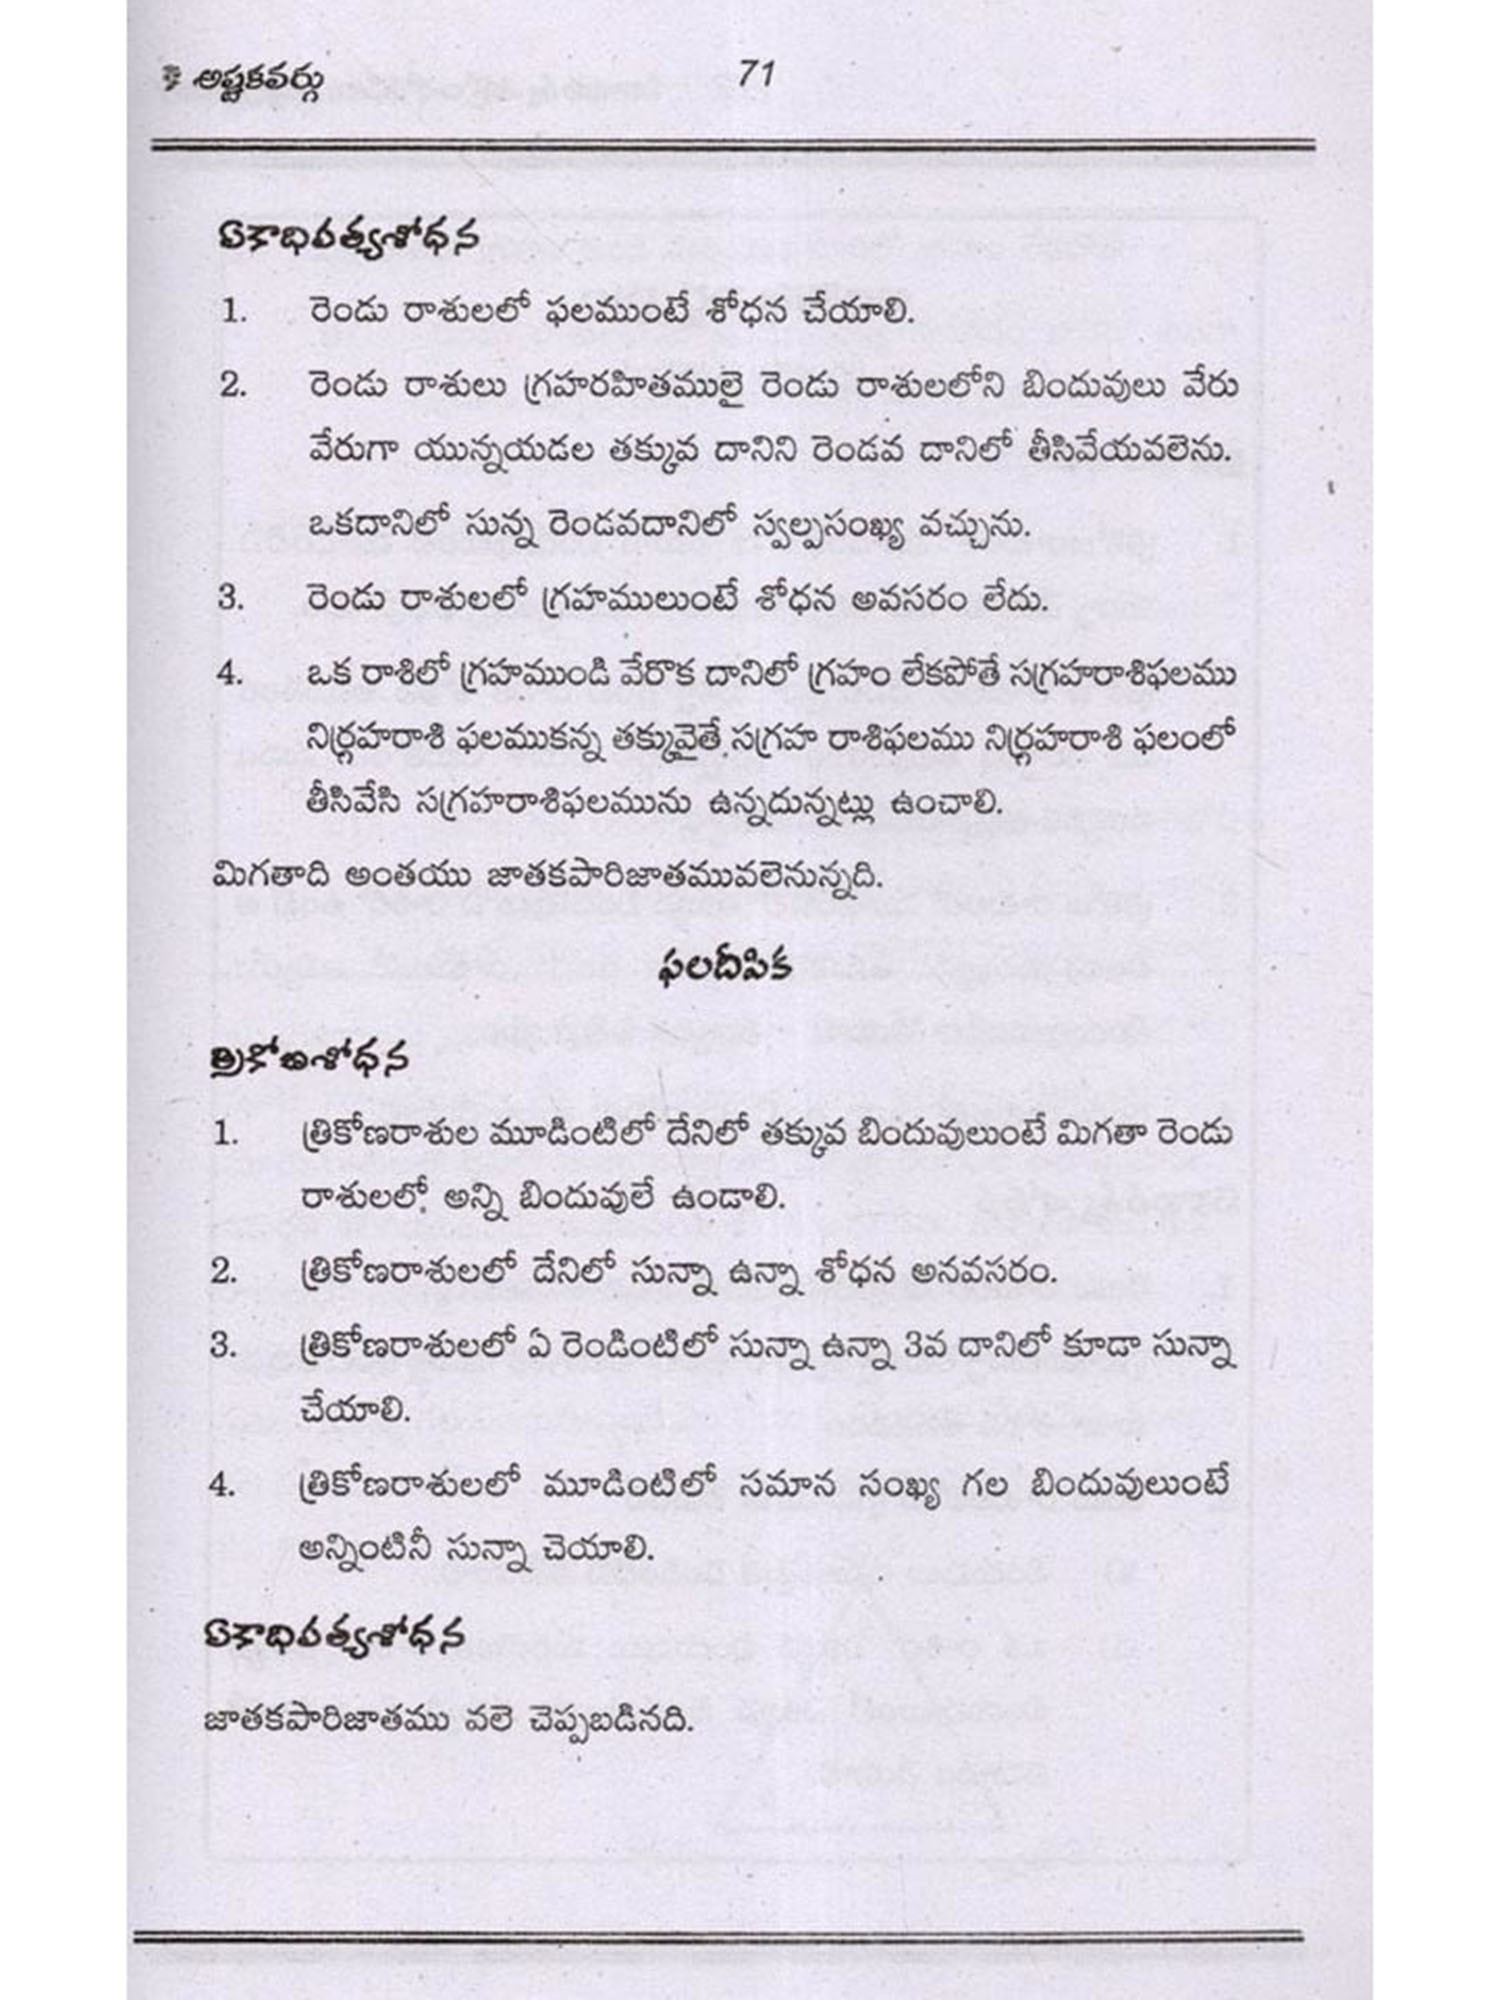 అష్టకవర్గు
71
ఏకాధిపత్యశోధన
1. రెండు రాశులలో ఫలముంటే శోధన చేయాలి.
2. రెండు రాశులు గ్రహరహితములై రెండు రాశులలోని బిందువులు వేరు
వేరుగా యున్నయడల తక్కువ దానిని రెండవ దానిలో తీసివేయవలెను.
ఒకదానిలో సున్న రెండవదానిలో స్వల్పసంఖ్య వచ్చును.
3. రెండు రాశులలో గ్రహములుంటే శోధన అవసరం లేదు.
4. ఒక రాశిలో గ్రహముండి వేరొక దానిలో గ్రహం లేకపోతే సగ్రహరాశిఫలము
నిర్గ్రహరాశి ఫలముకన్న తక్కువైతే సగ్రహ రాశిఫలము నిర్గ్రహరాశి ఫలంలో
తీసివేసి సగ్రహరాశిఫలమును ఉన్నదున్నట్లు ఉంచాలి.
మిగతాది అంతయు జాతకపారిజాతమువలెనున్నది.
ఫలదీపిక
త్రికోణశోధన
1. త్రికోణరాశుల మూడింటిలో దేనిలో తక్కువ బిందువులుంటే మిగతా రెండు
రాశులలో అన్ని బిందువులే ఉండాలి.
2. త్రికోణరాశులలో దేనిలో సున్నా ఉన్నా శోధన అనవసరం.
3. త్రికోణరాశులలో ఏ రెండింటిలో సున్నా ఉన్నా 3వ దానిలో కూడా సున్నా
చేయాలి.
4. త్రికోణరాశులలో మూడింటిలో సమాన సంఖ్య గల బిందువులుంటే
అన్నింటినీ సున్నా చెయాలి.
ఏకాధిపత్యశోధన
జాతకపారిజాతము వలె చెప్పబడినది.